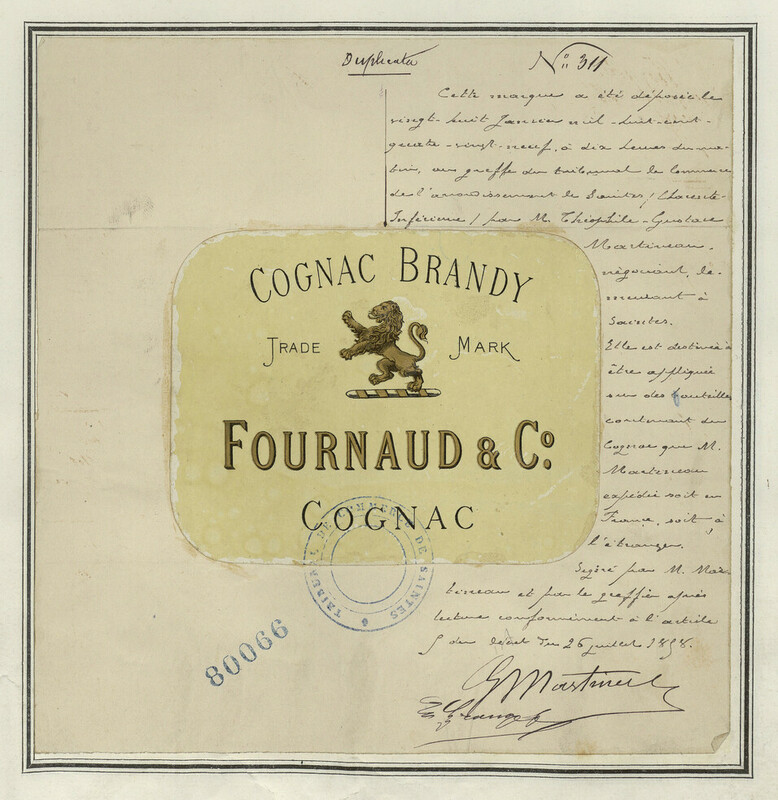 Duplicata
N° 311
Cette marque a été déposée le
vingt-huit Janvier mil-huit-cent-
quatre-vingt-neuf, à dix heures du ma-
tin, au greffe du tribunal de Commerce
de l'arrondissement de Saintes / Charente-
Inférieure / par M. Théophile-Gustave
Martineau,
négociant, de-
meurant à
Saintes.
Elle est destinée à
être appliquée
sur des bouteilles
contenant du
Cognac que M.
Martineau
expédie soit en
France, soit à
l'étranger.
Signé par M. Mar-
tineau et par le greffier après
lecture conformément à l'article
5 du décret du 26 juillet 1858.
G Martineau
COGNAC BRANDY
TRADE MARK
FOURNAUD & Co.
COGNAC
TRIBUNAL DE COMMERCE DE SAINTES
80066